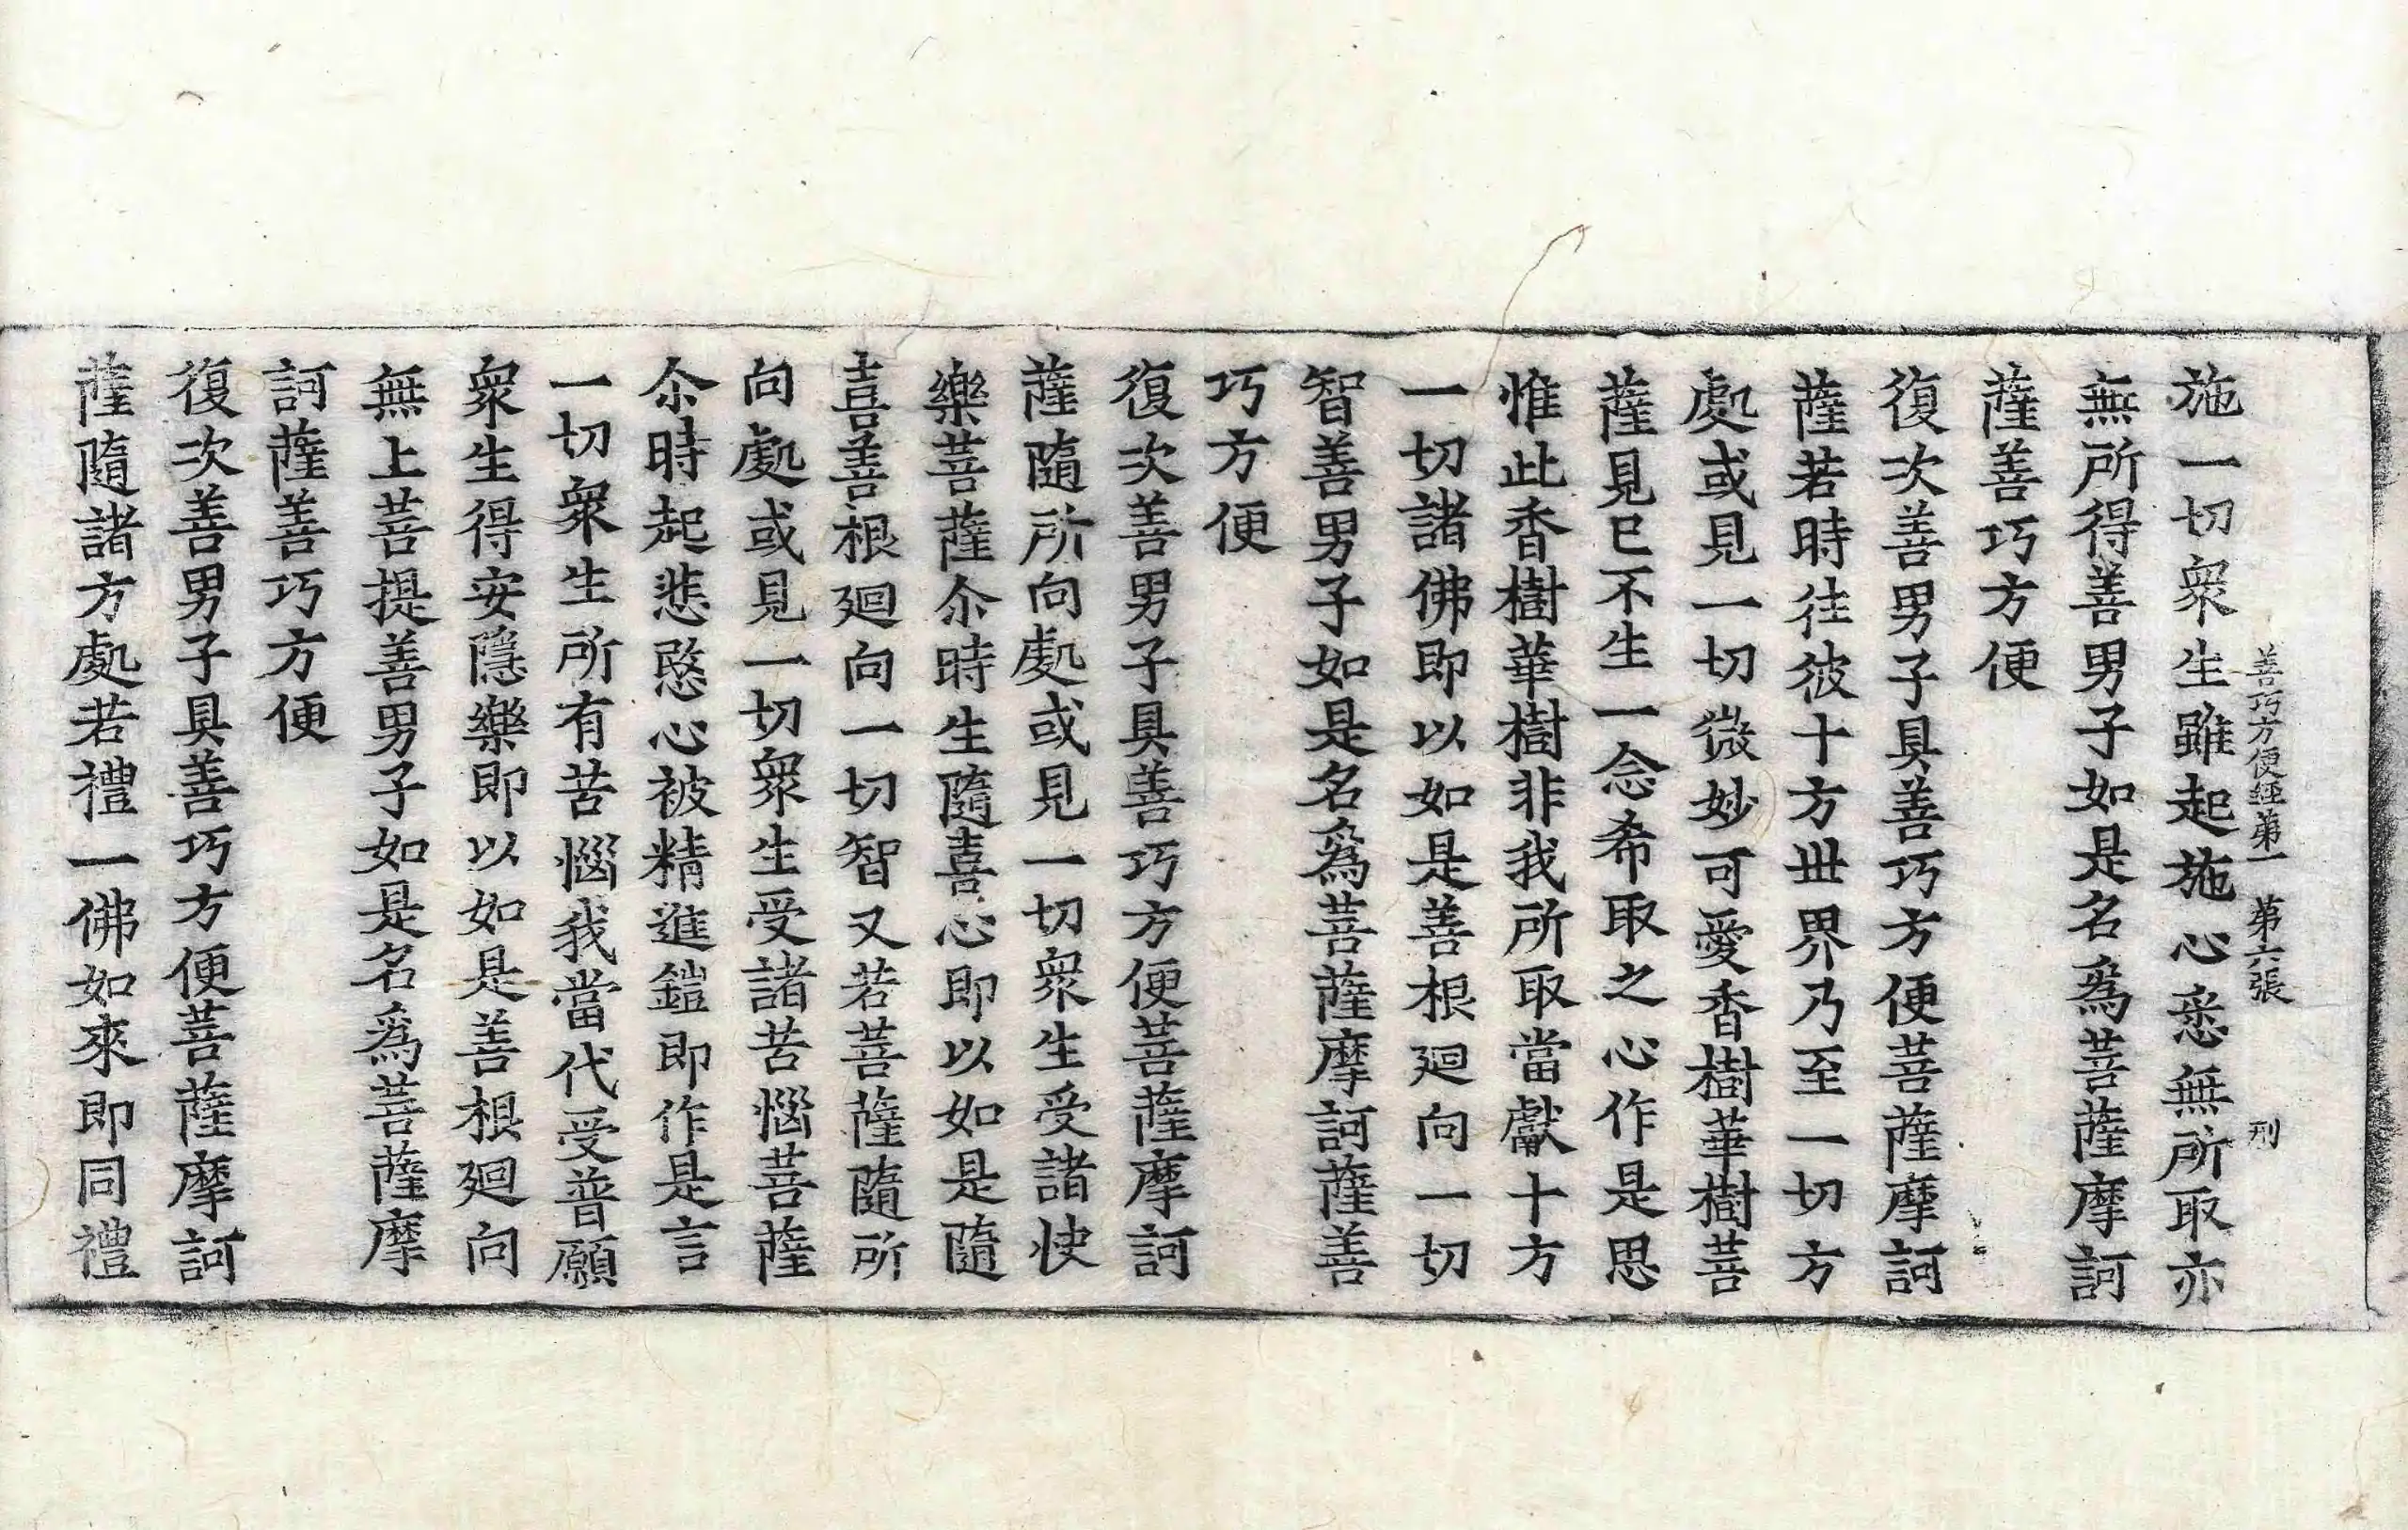 善巧方便經第一 第六張 刑
施一切衆生雖起施心悉無所取亦
無所得善男子如是名爲菩薩摩訶
薩善巧方便
復次善男子具善巧方便菩薩摩訶
薩若時往彼十方世界乃至一切方
處或見一切微妙可愛香樹華樹菩
薩見已不生一念希取之心作是思
惟此香樹華樹非我所取當獻十方
一切諸佛即以如是善根廻向一切
智善男子如是名爲菩薩摩訶薩善
巧方便
復次善男子具善巧方便菩薩摩訶
薩隨所向處或見一切衆生受諸快
樂菩薩尒時生隨喜心即以如是隨
喜善根廻向一切智又若菩薩隨所
向處或見一切衆生受諸苦惱菩薩
尒時起悲愍心被精進鎧即作是言
一切衆生所有苦惱我當代受普願
衆生得安隱樂即以如是善根廻向
無上菩提善男子如是名爲菩薩摩
訶薩善巧方便
復次善男子具善巧方便菩薩摩訶
薩隨諸方處若禮一佛如來即同禮